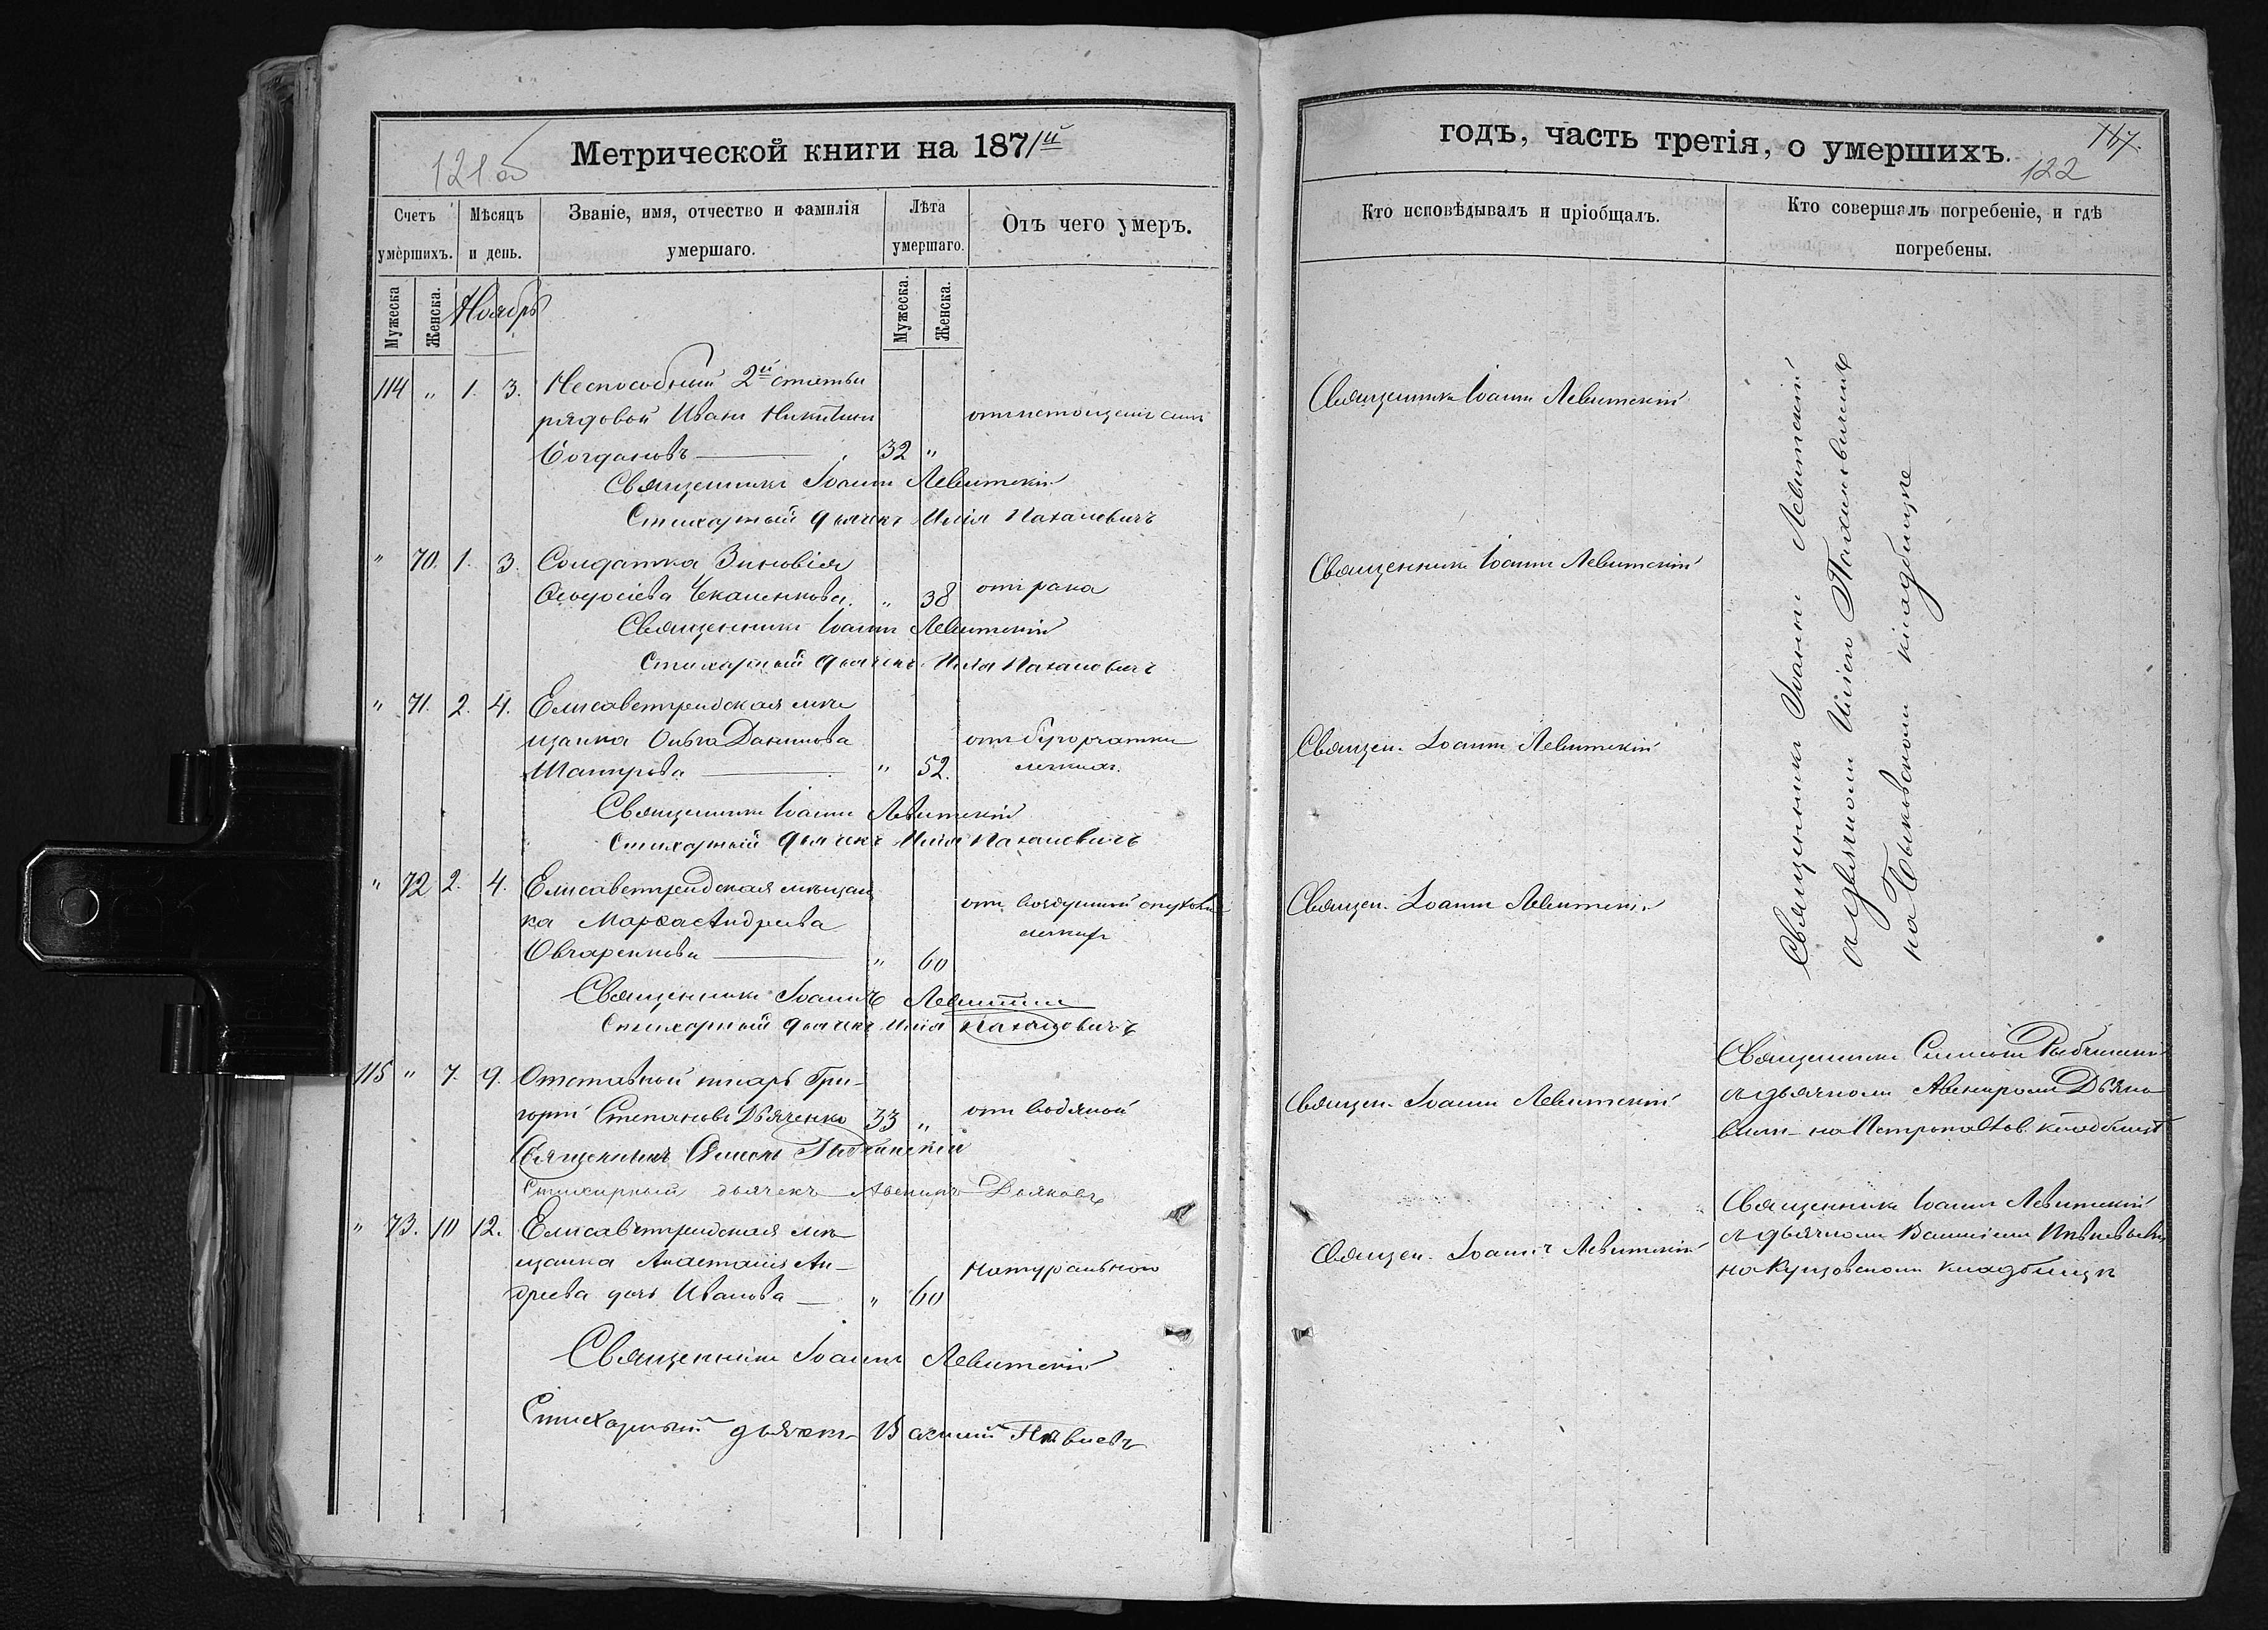 121 об
Метрической книги на 1871й
Счетъ умершихъ.
Мѣсяцъ и день.
Званіе, имя, отчество и фамилія умершаго.
Лѣта умершаго.
Отъ чего умеръ.
Мужеска
Женска.
Ноябрь
Мужеска.
Женска.
114 „ 1. 3. Неспособный 2й статьи
рядовой Иванъ Никитинъ
Богдановъ 32 „
Священникъ Іоаннъ Левитскій
Стихарный дьячекъ Илія
" 70. 1. 3. Солдатка Зиновія
„ 38 отъ рака
Священникъ Іоаннъ Левитскій
Стихарный дьячекъ Илія
" 71. 2. 4. Елисаветградская мѣ
щанка Ольга Данилова отъ бугорчатки
Шатрова „ 52. легкихъ.
Священникъ Іоаннъ Левитскій
Стихарный дьячекъ Илія
" 72 2. 4. Елисаветградская мѣщан
ка Марѳа Андреева отъ воздушной опухоли
Овчаренкова „ 60 легкихъ
Священникъ Іоаннъ Левитскій
Стихарный дьячекъ Илія
115 " 7. 9. Отставной писарь Гри-
горій Степановъ Дьяченко 33 „ отъ водяной
Священникъ Симеонъ
Стихарный дьячекъ Дьяковъ
" 73. 10 12. Елисаветградская мѣ
щанка Анастасія Ан- натуральною
дреева дочь Иванова — „ 60
Священникъ Іоаннъ Левитскій
Стихарный дьячекъ Василій
годъ, часть третія, о умершихъ.
117.
122
Кто исповѣдывалъ и пріобщалъ.
Кто совершалъ погребеніе, и гдѣ погребены.
Священникъ Іоаннъ Левитскій
Священникъ Іоаннъ Левитскій
Священ. Іоаннъ Левитскій
Священ. Іоаннъ Левитскій
Священникъ Іоаннъ Левитскій
съ дьячкомъ Иліею
на Быковскомъ кладбищѣ
Священ. Іоаннъ Левитскій
Священникъ Симеонъ
съ дьячкомъ Дьяко
вымъ на Петропавлов. кладбищѣ
Священ. Іоаннъ Левитскій
Священникъ Іоаннъ Левитскій
съ дьячкомъ Василіемъ
на кладбищѣ